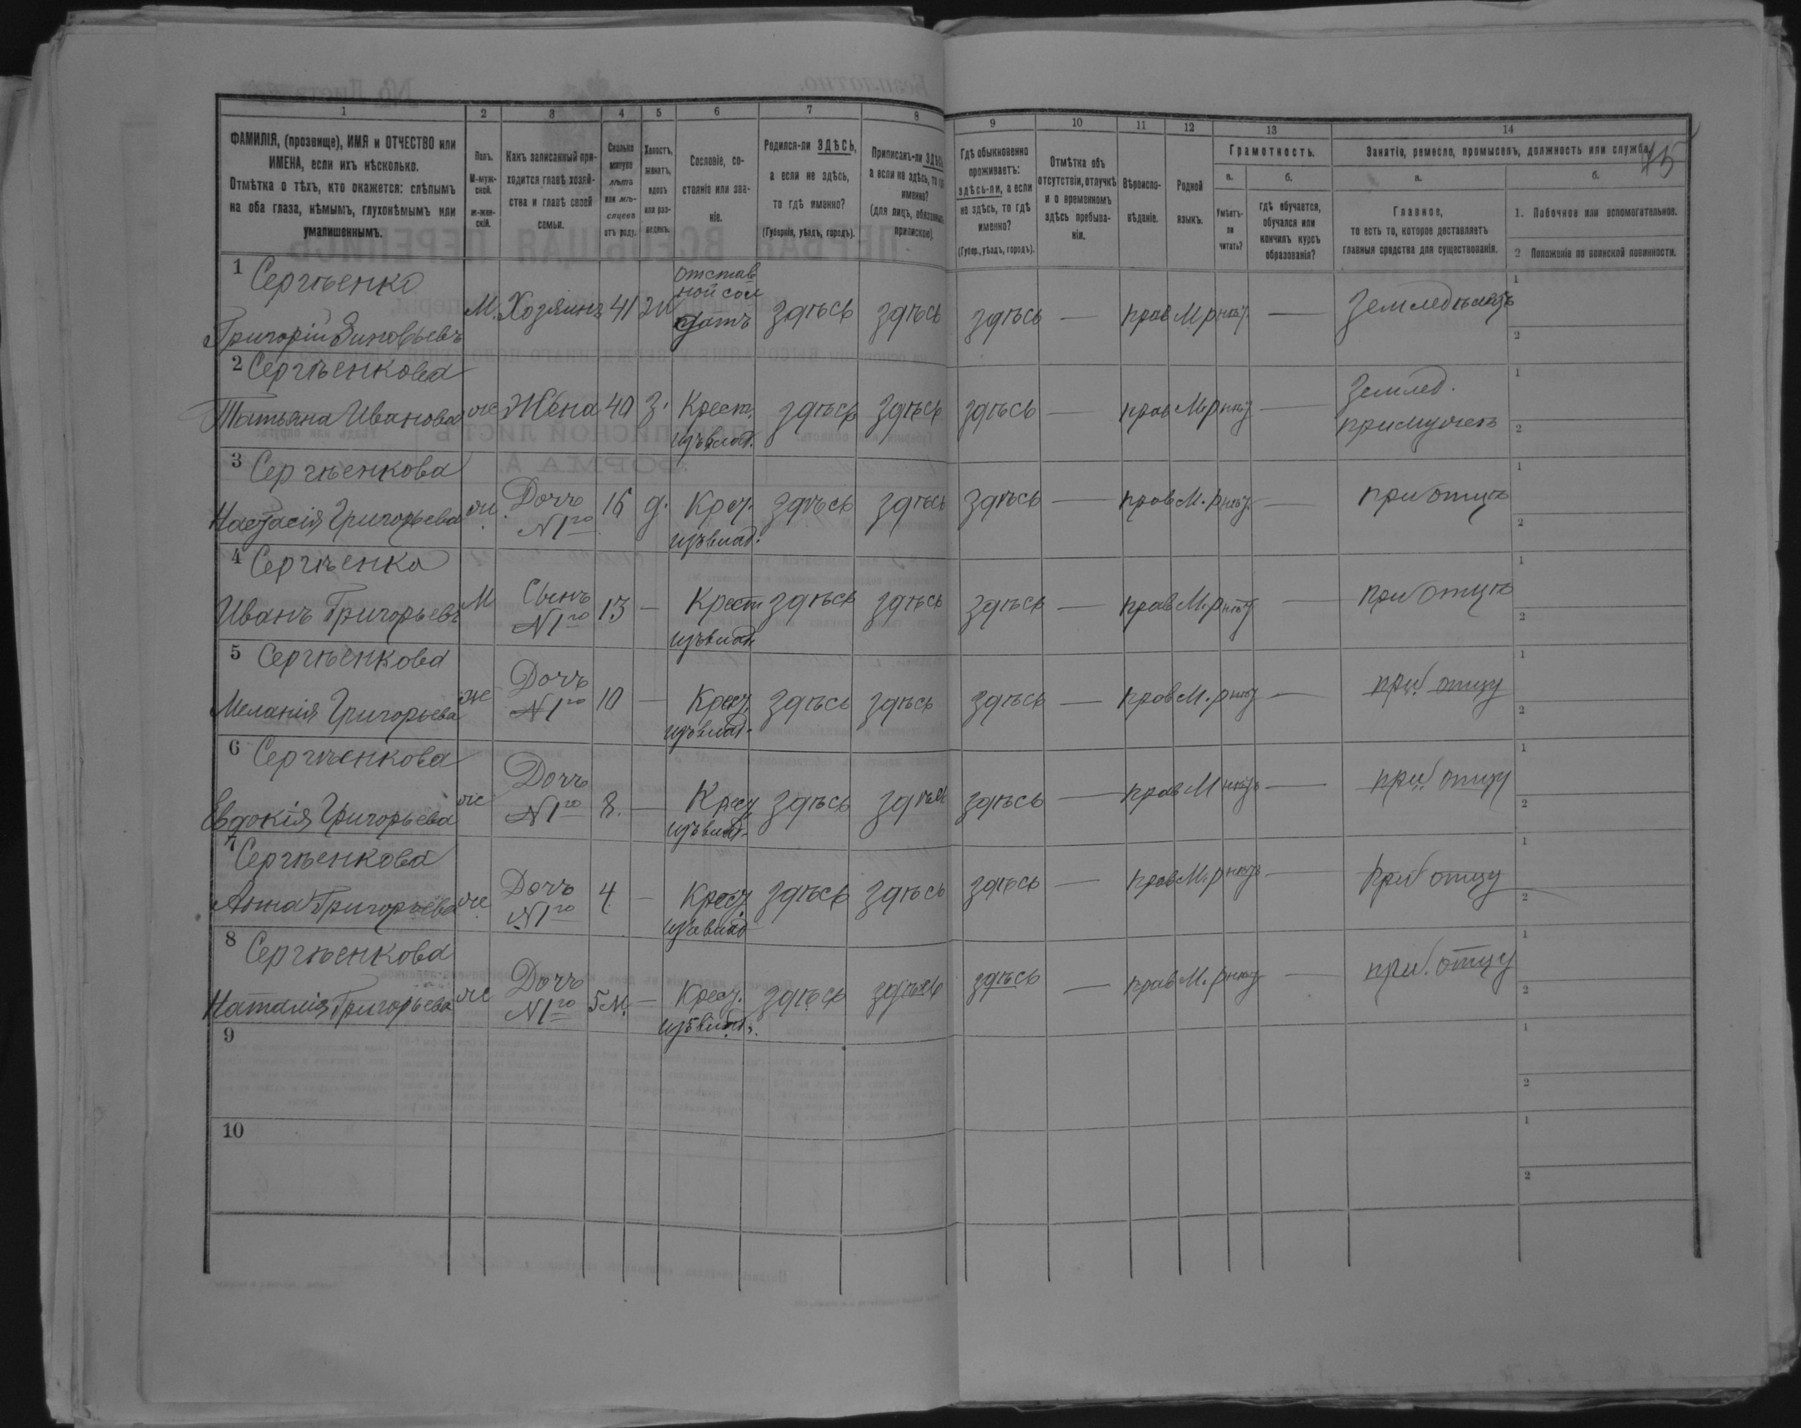 1 2 3 4 5 6 7 8 9 10 11 12 13 14
ФАМИЛІЯ, (прозвище), ИМЯ и ОТЧЕСТВО или
ИМЕНА, если ихъ нѣсколько.
Отмѣтка о тѣхъ, кто окажется: слѣпымъ
на оба глаза, нѣмымъ, глухонѣмымъ или
умалишеннымъ.
Полъ.
М-муж-
ской.
ж-жен-
скій.
Какъ записанный при-
ходится главѣ хозяй-
ства и главѣ своей
семьи.
Сколько
минуло
лѣтъ
или мѣ-
сяцевъ
отъ роду.
Холостъ,
женатъ,
вдовъ
или раз-
веденъ.
Сословіе, со-
стояніе или зва-
ніе.
Родился-ли ЗДѢСЬ,
а если не здѣсь,
то гдѣ именно?
(Губернія, уѣздъ, городъ).
Приписанъ-ли ЗДѢСЬ,
а если не здѣсь, то гдѣ
именно?
(для лицъ, обязанныхъ
припискою).
Гдѣ обыкновенно
проживаетъ:
здѣсь-ли, а если
не здѣсь, то гдѣ
именно?
(Губер., уѣздъ, городъ).
Отмѣтка объ
отсутствіи, отлучкѣ
и о временномъ
здѣсь пребыва-
ніи.
Вѣроиспо-
вѣданіе.
Родной
языкъ.
Грамотность.
а.
Умѣетъ-
ли
читать?
б.
гдѣ обучается,
обучался или
кончилъ курсъ
образованія?
Занятіе, ремесло, промыселъ, должность или служба.
а.
Главное,
то есть то, которое доставляетъ
главныя средства для существованія.
б.
1. Побочное или вспомогательное.
2 Положеніе по воинской повинности.
1 Сергѣенко
Григорій Зиновьевъ
М. Хозяинъ 41 ж
отстав
ной сол
датъ
здѣсь здѣсь здѣсь — прав М.р нѣт — Земледѣлецъ
1
2
2 Сергѣенкова
Татьяна Иванова
ж Жена 40 З. Крест.
изъ влад.
здѣсь здѣсь здѣсь — прав М.р нѣт —
Землед.
при мужѣ
1
2
3 Сергѣенкова
Настасія Григорьева
ж. Дочь
№ 1го
16 д. Крес.
изъ влад.
здѣсь здѣсь здѣсь — прав М.р нѣт — при отцѣ
1
2
4 Сергѣенко
Иванъ Григорьевъ
М Сынъ
№ 1го
13 — Крест
изъ влад.
здѣсь здѣсь здѣсь — прав М.р нѣт — при отцѣ
1
2
5 Сергѣенкова
Меланія Григорьева
ж Дочь
№ 1го
10 — Крес.
изъ влад.
здѣсь здѣсь здѣсь — прав М.р нѣт — приб отцу
1
2
6 Сергѣенкова
Евдокія Григорьева
ж Дочь
№ 1го
8. — Крес.
изъ влад.
здѣсь здѣсь здѣсь — прав М нѣтъ — приб отцу
1
2
7 Сергѣенкова
Анна Григорьева
ж. Дочь
№ 1го
4 — Крес.
изъ влад
здѣсь здѣсь здѣсь — прав М.р нѣтъ — приб отцу
1
2
8 Сергѣенкова
Наталія Григорьева
ж Дочь
№ 1го
5 м. — Крес.
изъ влад.
здѣсь здѣсь здѣсь — прав М.р нѣт — приб. отцу
1
2
9
1
2
10
1
2